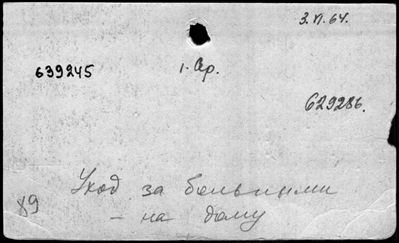 3.VI.64.
639245
1. Ар.
629286.
Уход за больными
— на дому
89